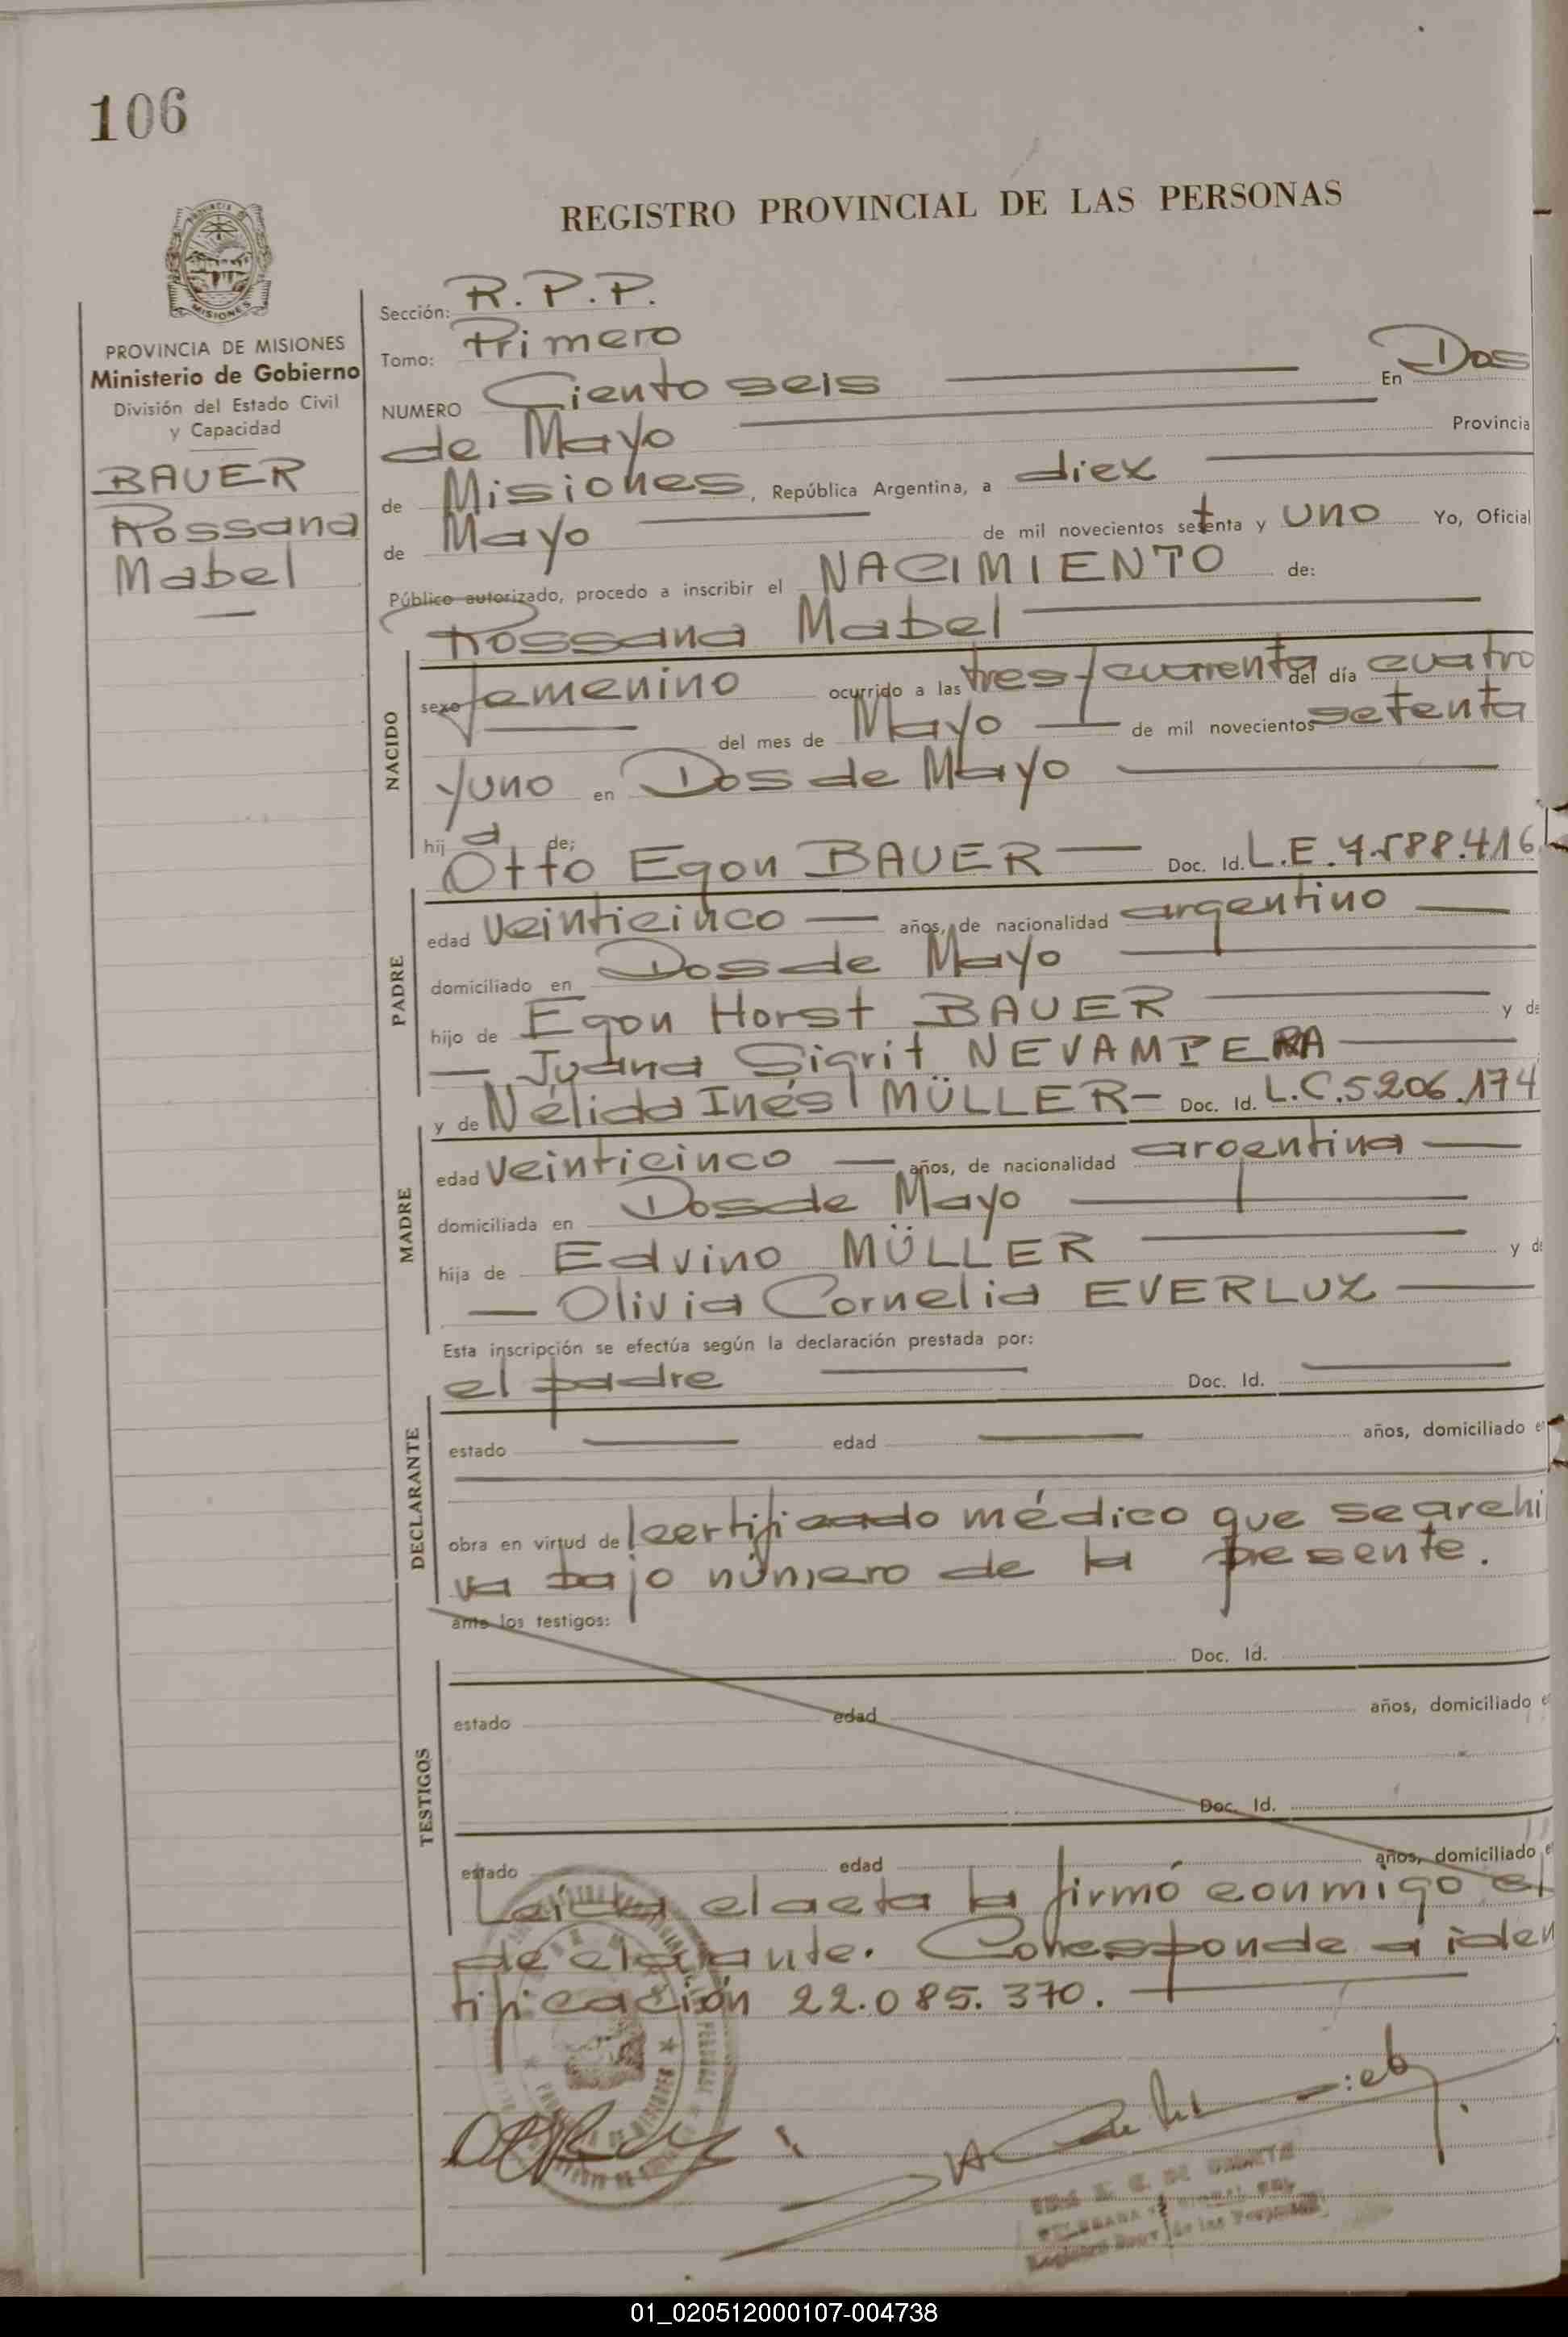 106
REGISTRO PROVINCIAL DE LAS PERSONAS
PROVINCIA DE MISIONES
Ministerio de Gobierno
División del Estado Civil
y Capacidad
BAUER
Rossana
Mabel
Sección: R.P.P.
Tomo: Primero
NUMERO Ciento seis En Dos
de Mayo Provincia
de Misiones, República Argentina, a diez
de Mayo de mil novecientos setenta y uno Yo, Oficial
Público autorizado, procedo a inscribir el NACIMIENTO de:
Rossana Mabel
NACIDO
sexo femenino ocurrido a las tres y cuarenta del día cuatro
del mes de Mayo de mil novecientos setenta
y uno en Dos de Mayo
hij a de:
Otto Egon BAUER — Doc. Id. L.E. 7.588.416
PADRE
edad veinticinco — años, de nacionalidad argentino —
domiciliado en Dos de Mayo
hijo de Egon Horst BAUER y de
— Juana Sigrit NEVAMPERA
y de Nélida Inés MÜLLER — Doc. Id. L.C. 5.206.174
MADRE
edad veinticinco — años, de nacionalidad argentina —
domiciliada en Dos de Mayo
hija de Edvino MÜLLER y de
— Olivia Cornelia EVERLUZ —
Esta inscripción se efectúa según la declaración prestada por:
el padre Doc. Id.
DECLARANTE
estado edad años, domiciliado e
obra en virtud de certificado médico que se archi
va bajo número de la presente.
ante los testigos:
TESTIGOS
Doc. Id.
estado edad años, domiciliado e
Doc. Id.
estado edad años, domiciliado e
Leída el acta la firmó conmigo el
declarante. Corresponde a iden
tificación 22.085.370.
01_020512000107-004738